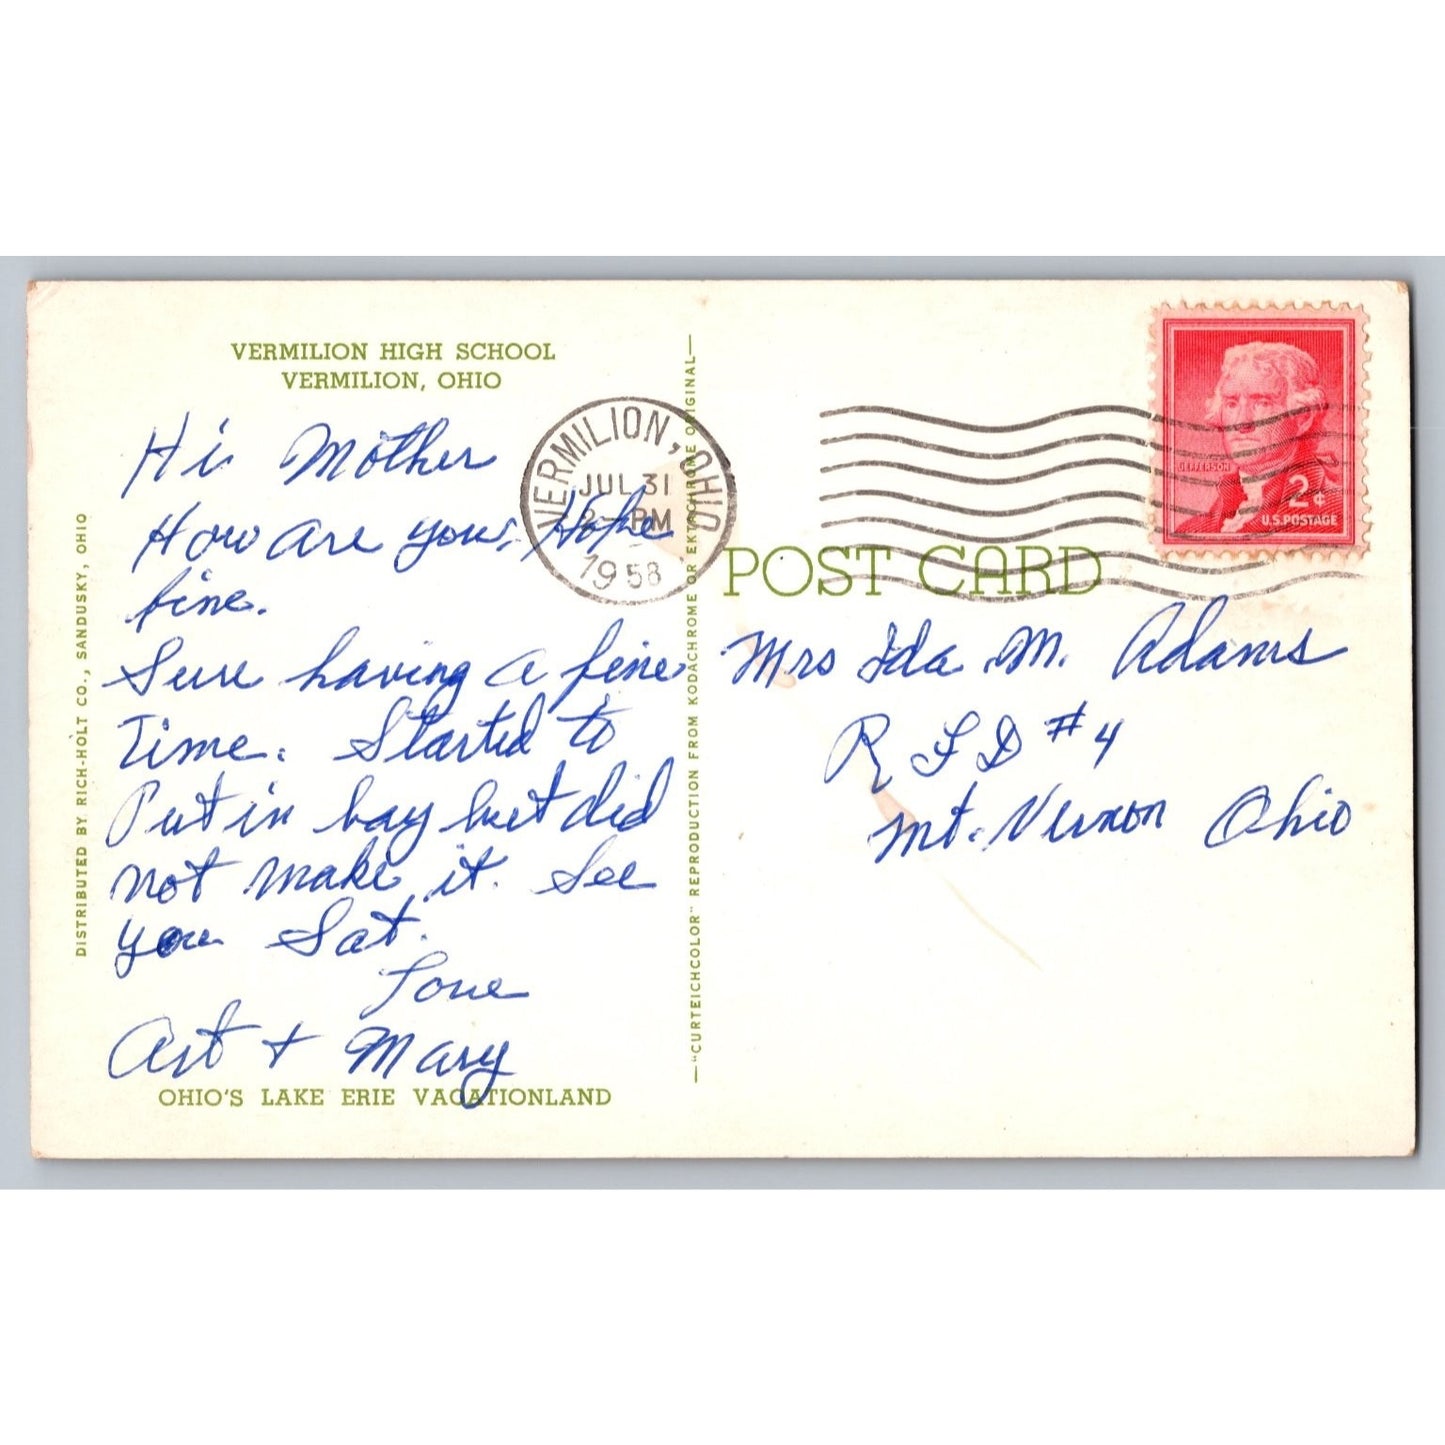 VERMILION HIGH SCHOOL
VERMILION, OHIO
Hi Mother
How are you, Hope
fine.
Sure having a fine
Time. Started to
Put in bay but did
not make it. See
you Sat.
Love
Art + Mary
OHIO'S LAKE ERIE VACATIONLAND
DISTRIBUTED BY RICH-HOLT CO., SANDUSKY, OHIO
VERMILION, OHIO
JUL 31
2 - PM
1958
—"CURTEICHCOLOR" REPRODUCTION FROM KODACHROME OR EKTACHROME ORIGINAL—
JEFFERSON
2¢
U.S. POSTAGE
POST CARD
Mrs Ida M. Adams
R F D #4
Mt. Vernon Ohio